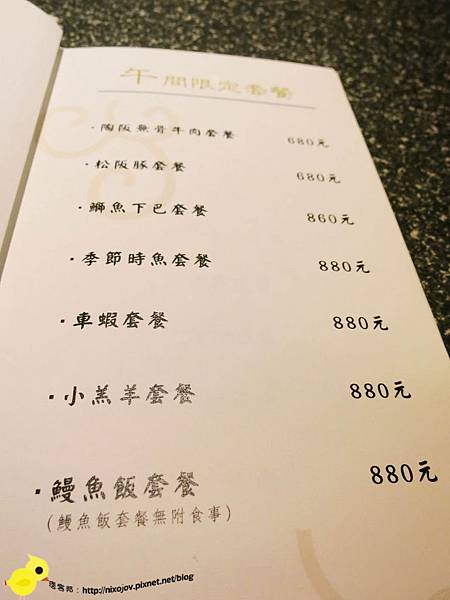 午間限定套餐
·陶阪無骨牛肉套餐 680元
·松阪豚套餐 680元
·鰤魚下巴套餐 860元
·季節時魚套餐 880元
·車蝦套餐 880元
·小羔羊套餐 880元
·鰻魚飯套餐 880元
(鰻魚飯套餐無附食事)
痞客邦:http://nixojov.pixnet.net/blog